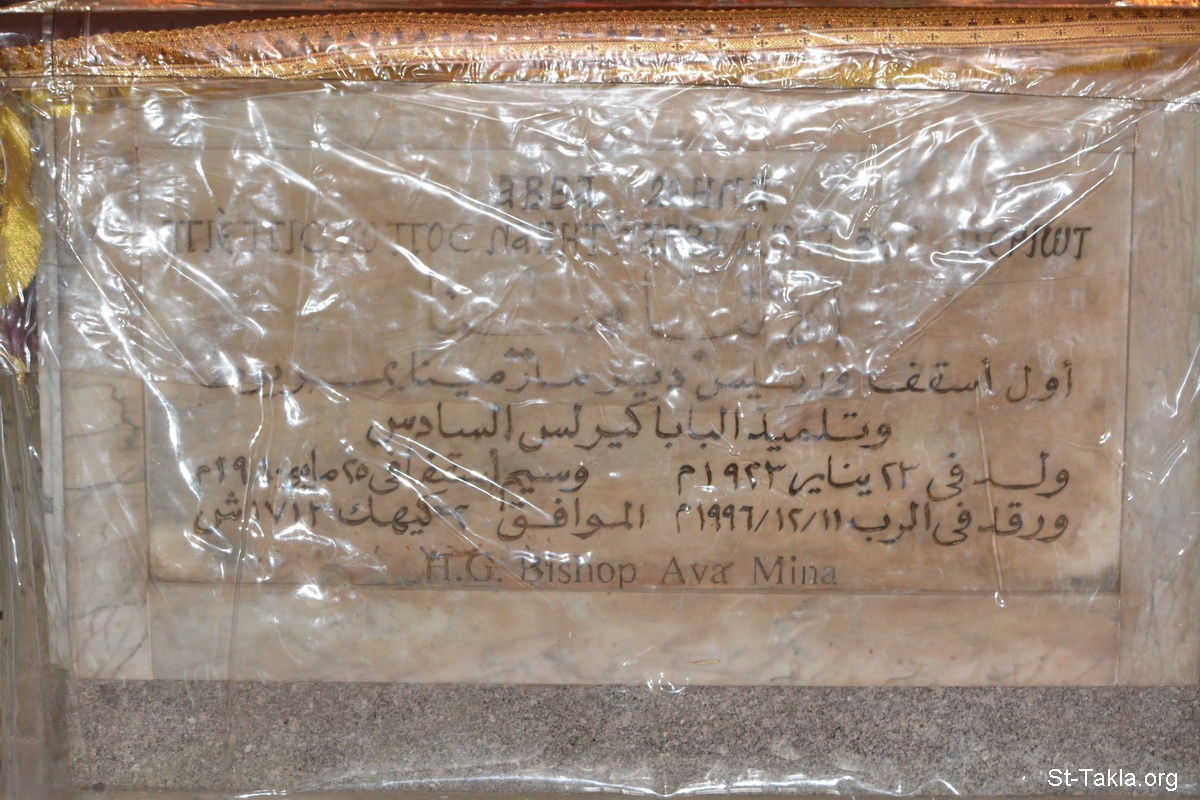 ⲁⲃⲃⲁ ⲙⲏⲛⲁ
الأنبا مينا
أول أسقف ورئيس دير مارمينا بمريوط
وتلميذ البابا كيرلس السادس
ولد في ٢٣ يناير ١٩٢٣م وسيم أسقفا في ٢٥ مايو ١٩٨٠م
ورقد في الرب ١٩٩٦/١٢/١١م الموافق ٢ كيهك ١٧١٣ش
H.G. Bishop Ava Mina
St-Takla.org